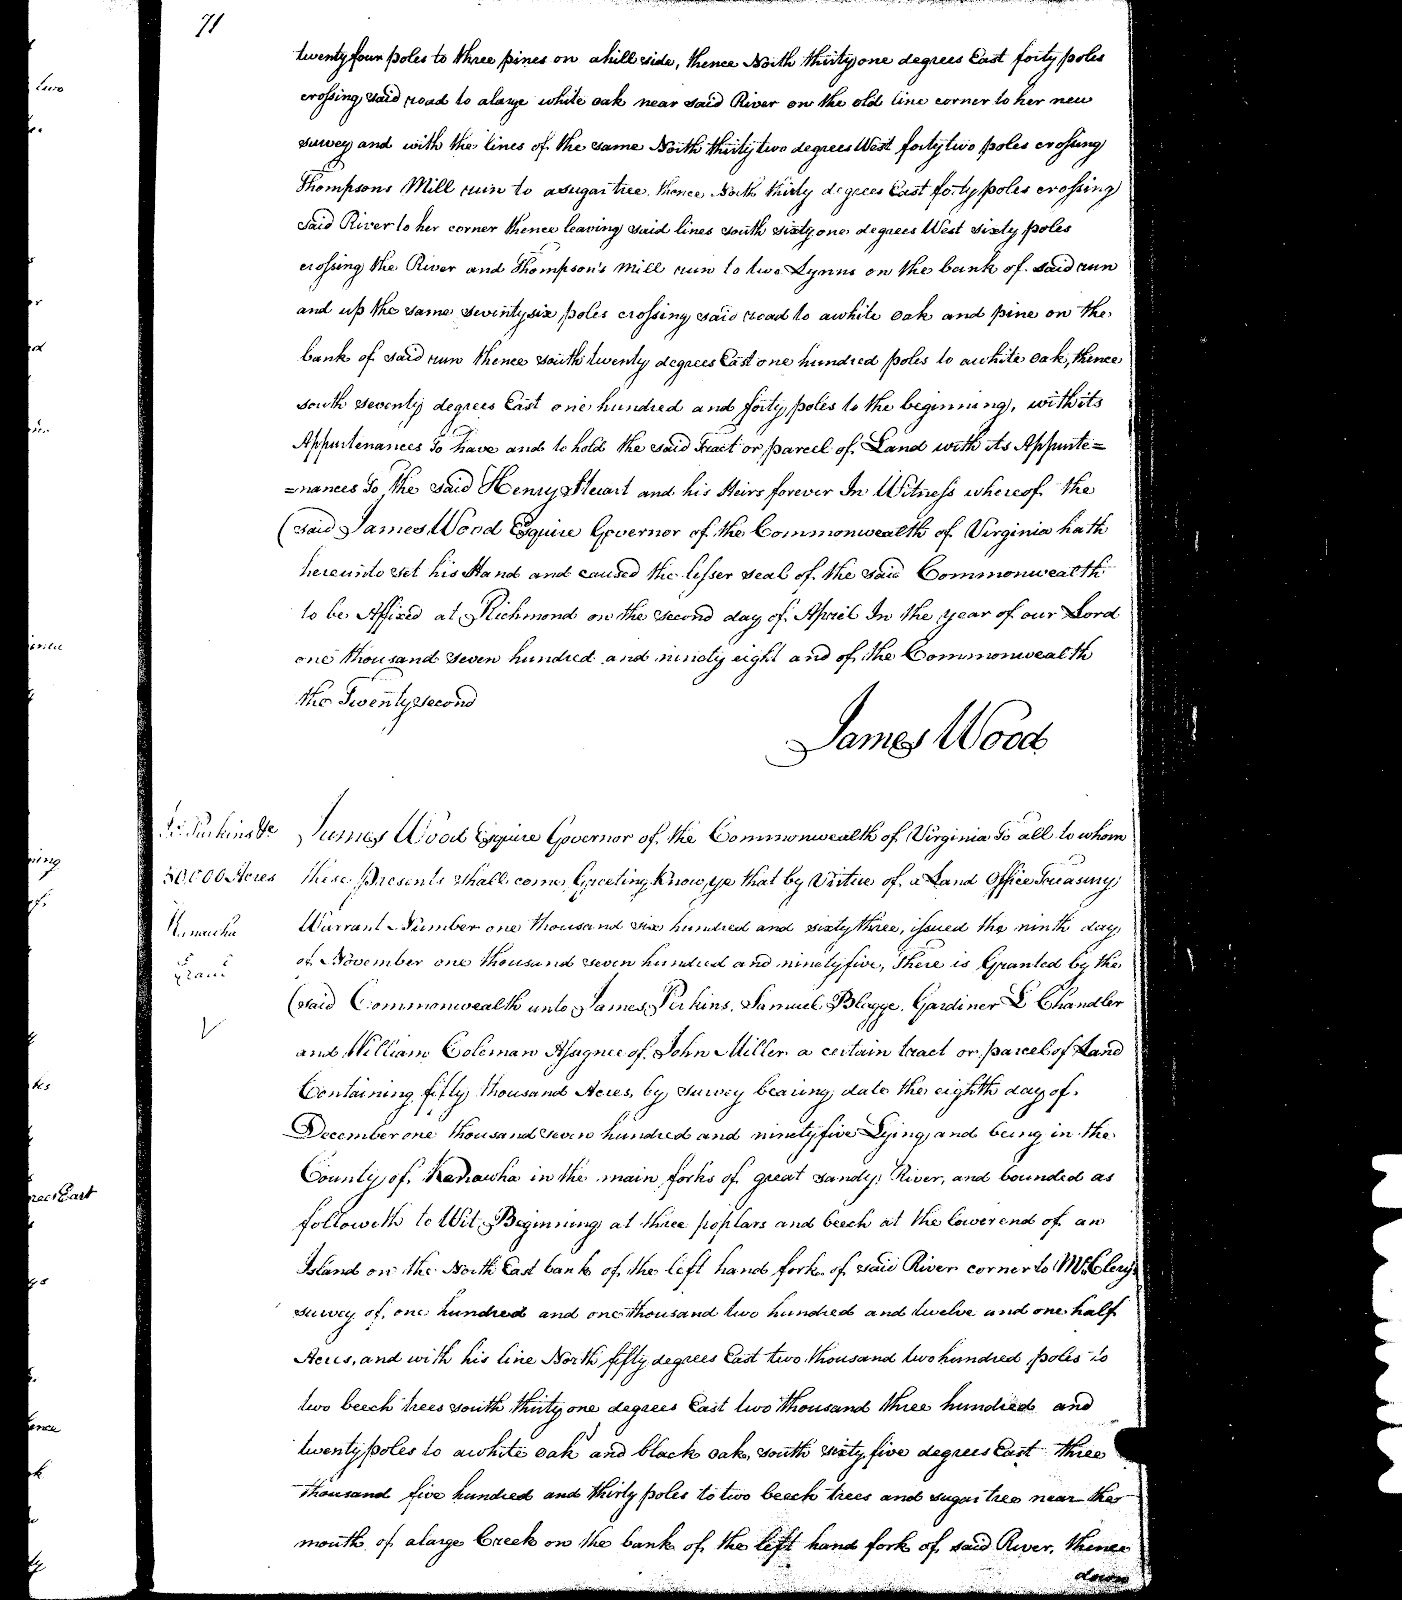 71
twenty four poles to three pines on a hill side, thence North thirty one degrees East forty poles
crossing said road to a large white oak near said River on the old line corner to her new
survey and with the lines of the same North thirty two degrees West forty two poles crossing
Thompsons Mill run to a sugar tree thence North thirty degrees East forty poles crossing
said River to her corner thence leaving said lines south sixty one degrees West sixty poles
crossing the River and Thompson's Mill run to two Lynns on the bank of said run
and up the same seventy six poles crossing said road to a white oak and pine on the
bank of said run thence south twenty degrees East one hundred poles to a white oak, thence
south seventy degrees East one hundred and forty poles to the beginning, with its
Appurtenances To have and to hold the said Tract or parcel of Land with its Appurte=
=nances To the said Henry Steuart and his Heirs forever In Witness whereof the
said James Wood Esquire Governor of the Commonwealth of Virginia hath
hereunto set his Hand and caused the lesser seal of the said Commonwealth
to be Affixed at Richmond on the second day of April In the year of our Lord
one thousand seven hundred and ninety eight and of the Commonwealth
the Twenty second
James Wood
Js. Perkins &c
50,000 Acres
Kanawha
Exam'd
V
James Wood Esquire Governor of the Commonwealth of Virginia To all to whom
these Presents shall come Greeting Know ye that by Virtue of a Land Office Treasury
Warrant Number one thousand six hundred and sixty three, issued the ninth day
of November one thousand seven hundred and ninety five, There is Granted by the
said Commonwealth unto James Perkins, Samuel Blagge, Gardiner L Chandler
and William Coleman Assignee of John Miller a certain tract or parcel of Land
Containing fifty thousand Acres, by survey bearing date the eighth day of
December one thousand seven hundred and ninety five Lying and being in the
County of Kanawha in the main forks of great sandy River, and bounded as
followeth to Wit: Beginning at three poplars and beech at the lower end of an
Island on the North East bank of the left hand fork of said River corner to McClerys
survey of one hundred and one thousand two hundred and twelve and one half
Acres, and with his line North fifty degrees East two thousand two hundred poles to
two beech trees south thirty one degrees East two thousand three hundred and
twenty poles to a white oak and black oak, south sixty five degrees East three
thousand five hundred and thirty poles to two beech trees and sugar tree near the
mouth of a large Creek on the bank of the left hand fork of said River, thence
down